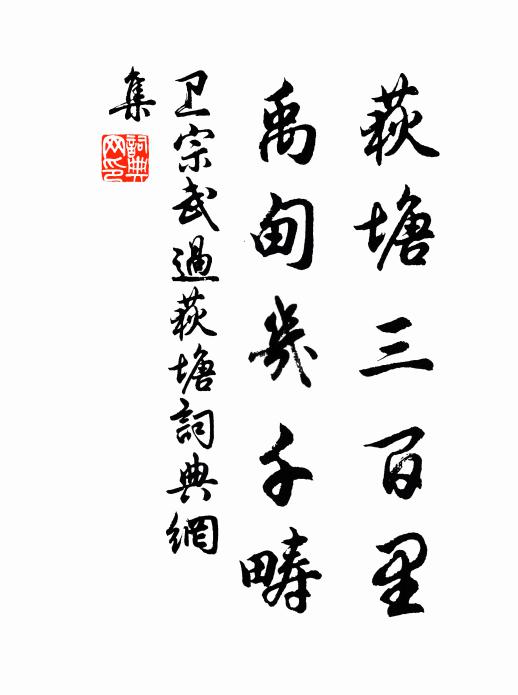 荻塘三百里
禹甸幾千疇
卫宗武過荻塘詞典網
集
詞典
网印